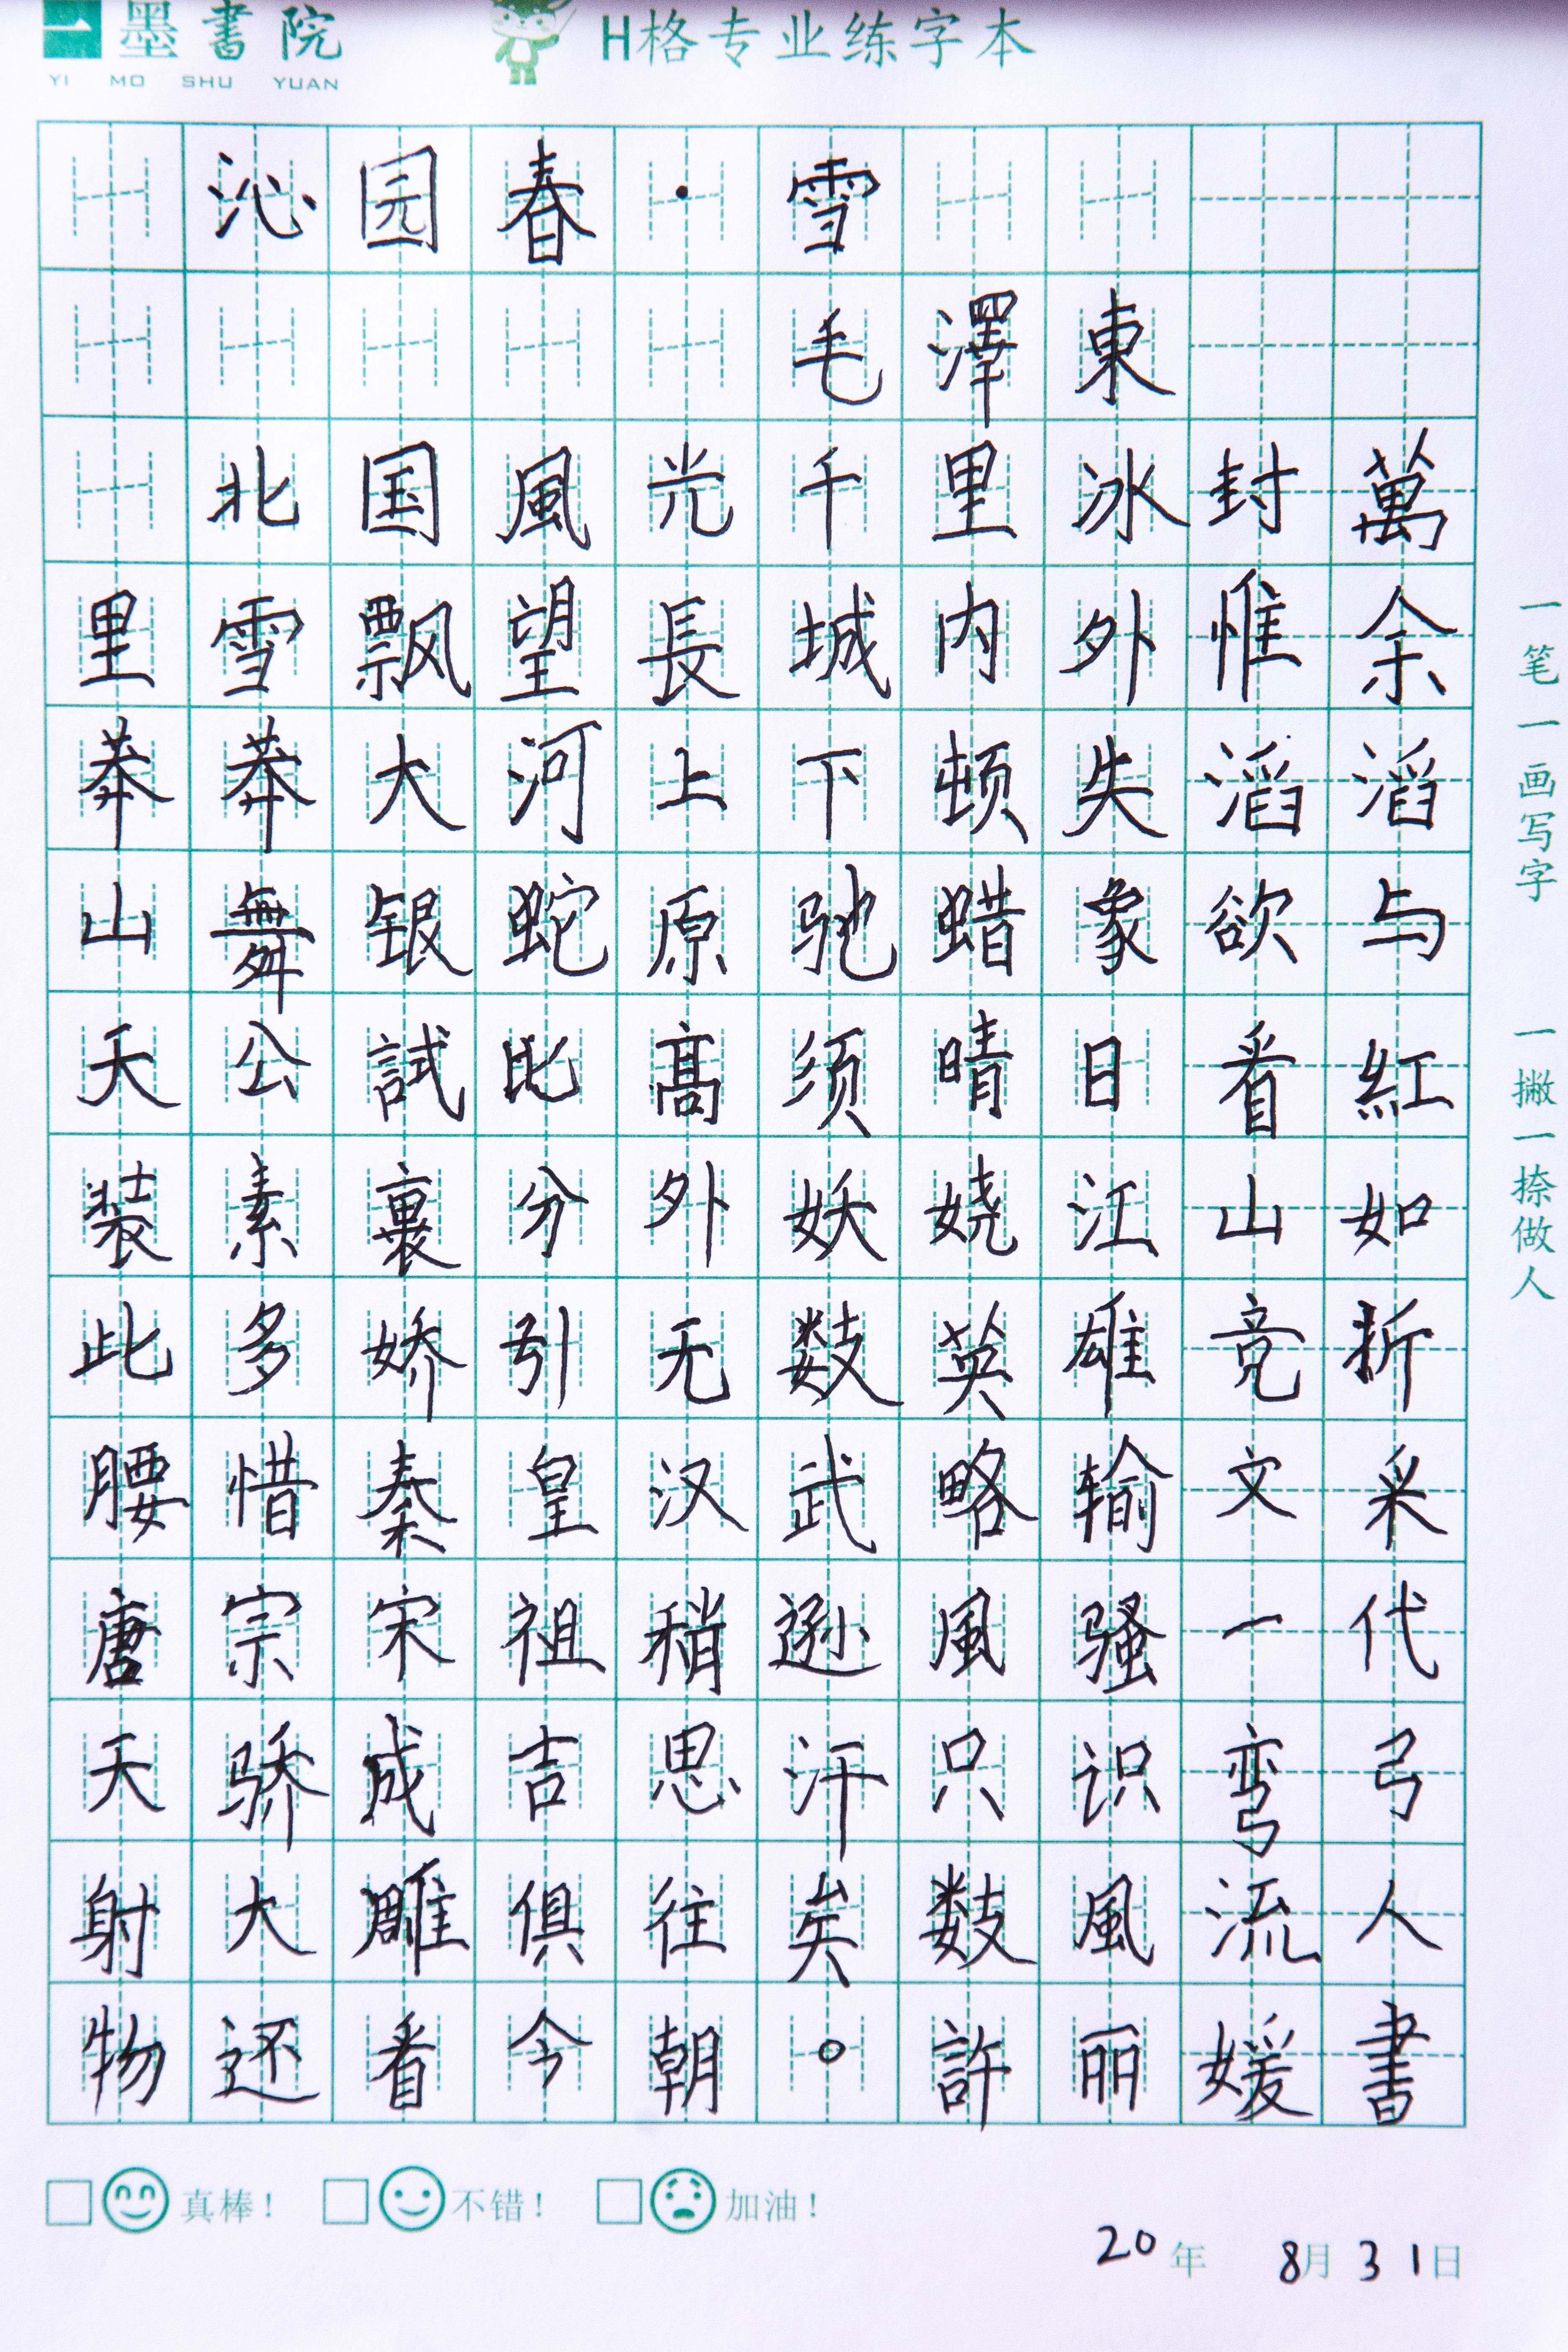 一墨書院 H格专业练字本
YI MO SHU YUAN
沁园春·雪
毛澤東
北国風光千里冰封萬
里雪飘望長城内外惟余
莽莽大河上下顿失滔滔
山舞银蛇原驰蜡象欲与
天公試比髙须晴日看紅
装素裹分外妖娆江山如
此多娇引无数英雄竞折
腰惜秦皇汉武略输文采
唐宗宋祖稍逊風骚一代
天骄成吉思汗只识弯弓
射大雕俱往矣数風流人
物还看今朝。許丽媛書
一笔一画写字 一撇一捺做人
真棒! 不错! 加油!
20年 8月31日